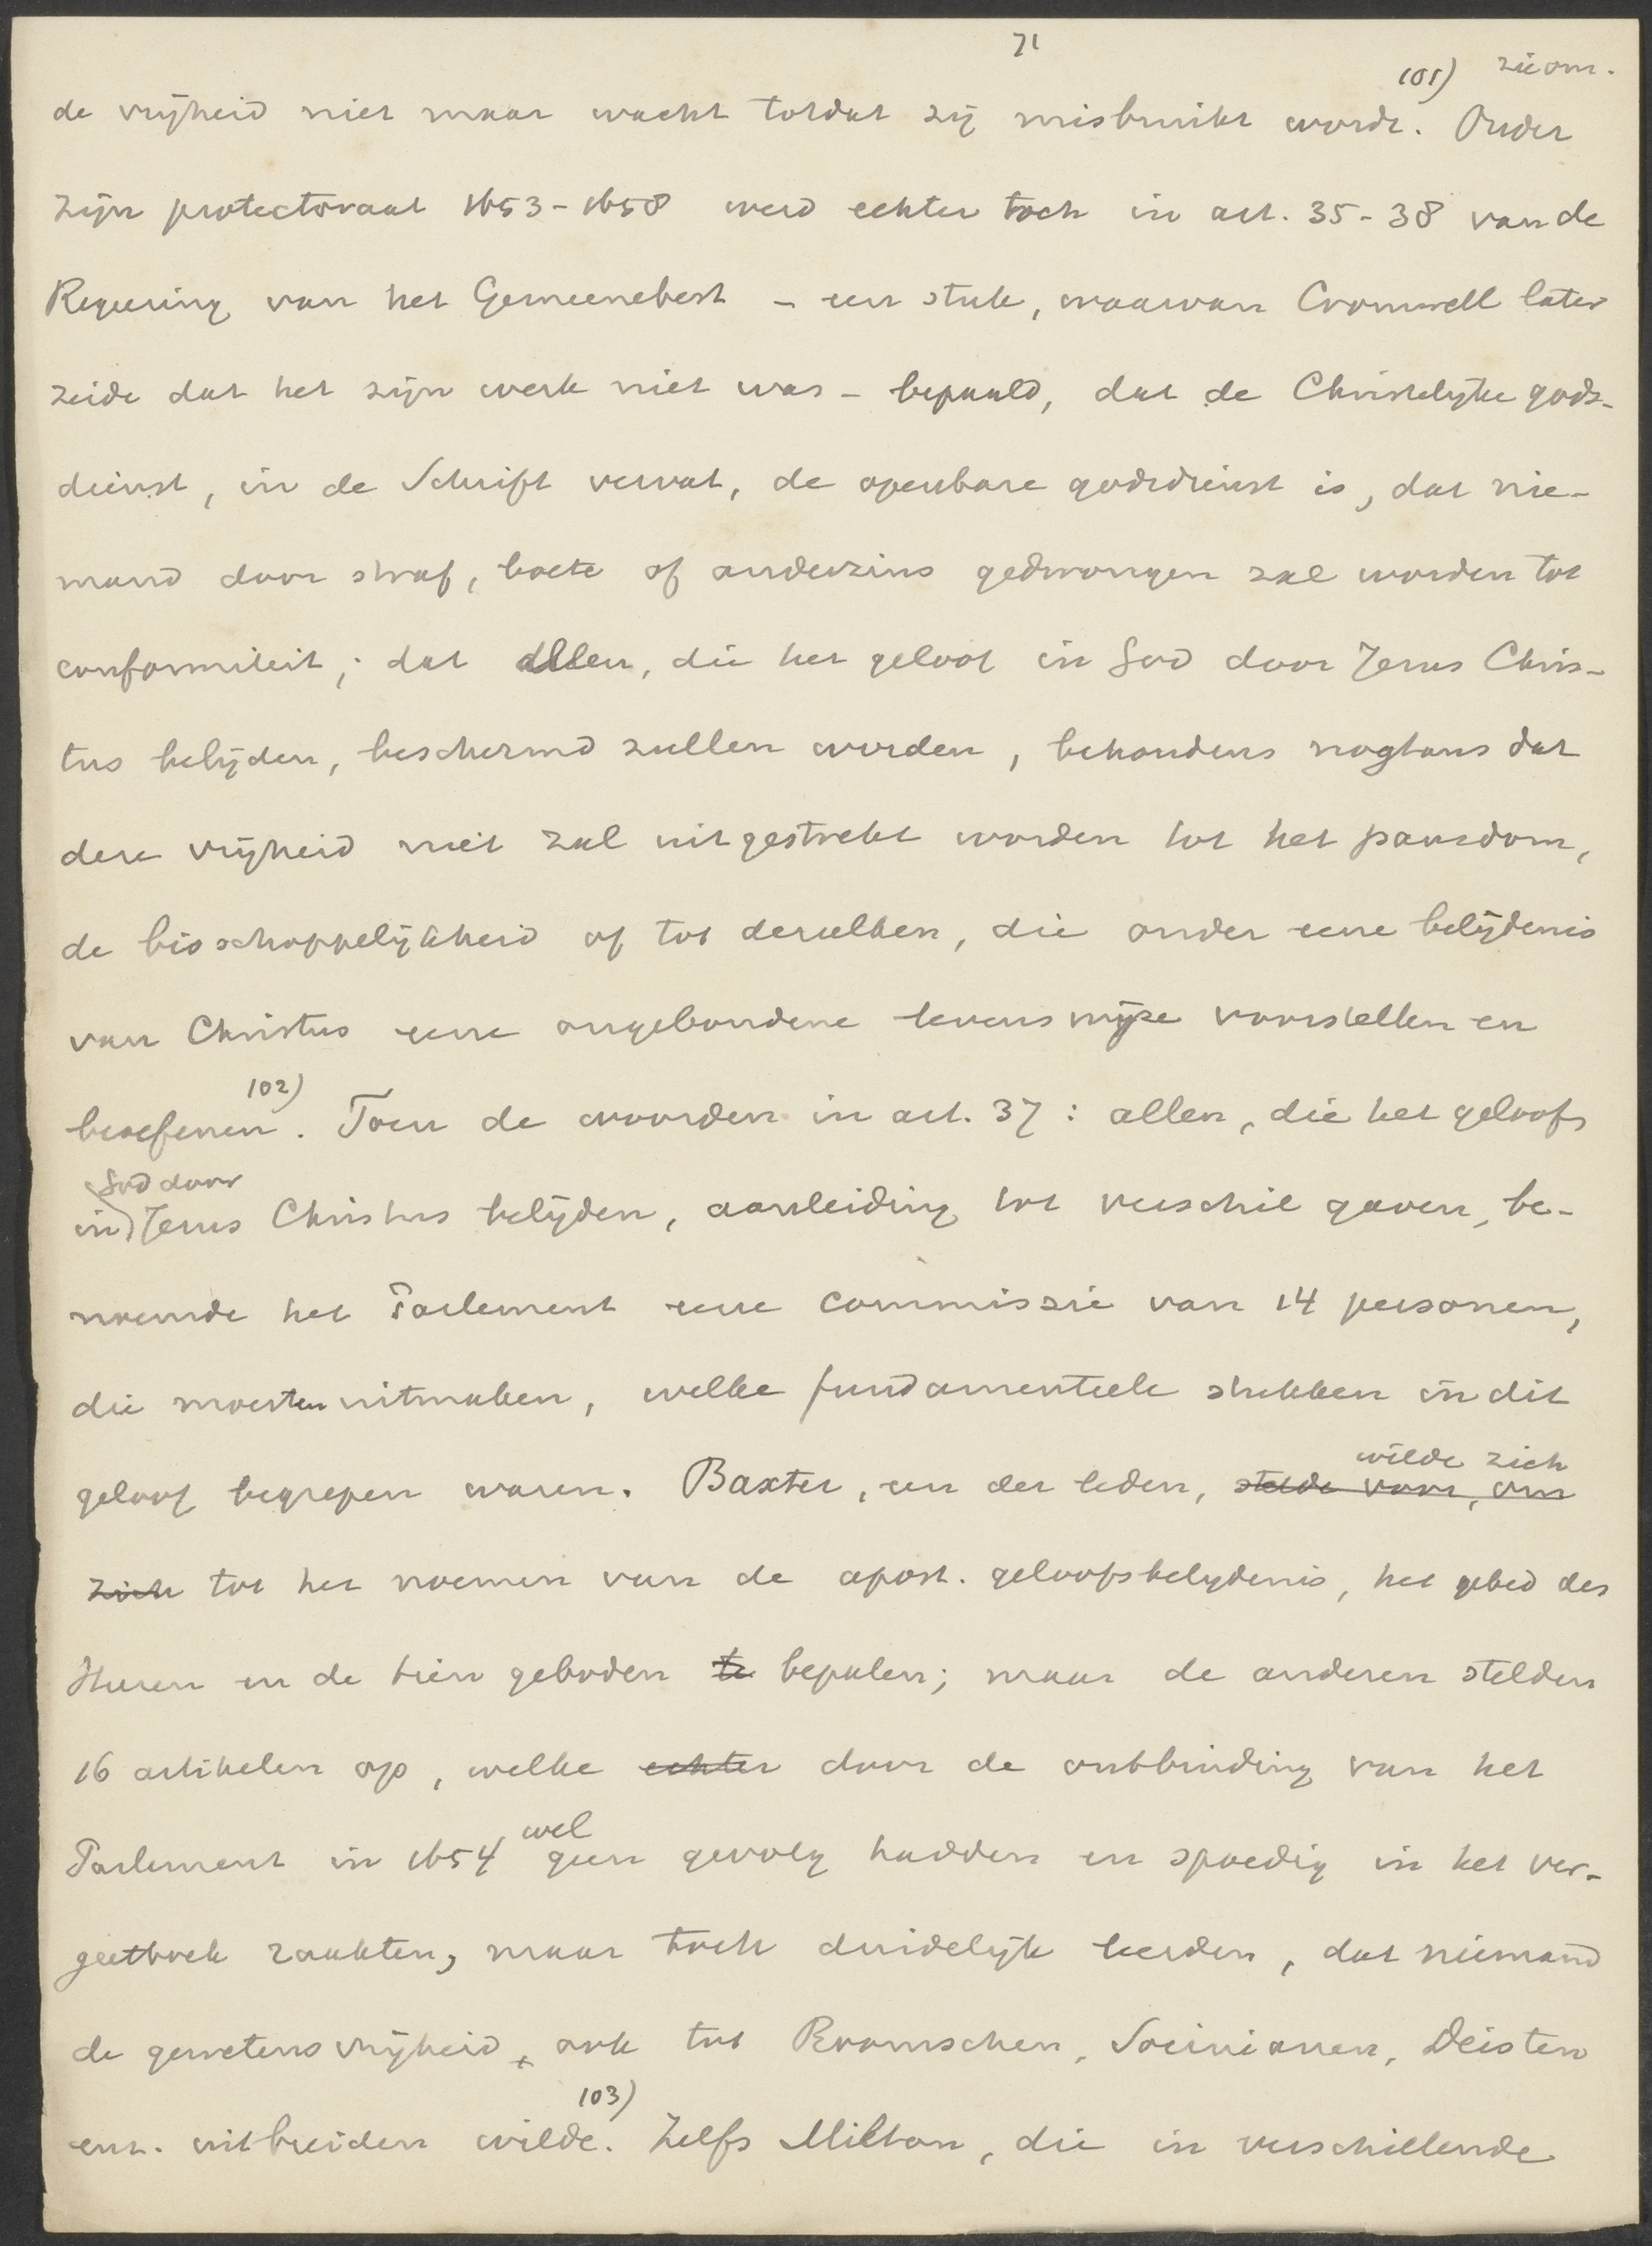 71
101) zie om.
de vrijheid niet maar wacht totdat zij misbruikt wordt. Onder
zijn protectoraat 1653-1658 werd echter toch in art. 35-38 van de
Regeering van het Gemeenebest - een stuk, waarvan Cromwell later
zeide dat het zijn werk niet was - bepaald, dat de Christelijke gods-
dienst, in de Schrift vervat, de openbare godsdienst is, dat nie-
mand door straf, boete of anderzins gedwongen zal worden tot
conformiteit; dat allen, die het geloof in God door Jezus Chris-
tus belijden, beschermd zullen worden, behoudens nogtans dat
deze vrijheid niet zal uitgestrekt worden tot het pausdom,
de bisschoppelijkheid of tot dezulken, die onder eene belijdenis
van Christus eene ongebondene levenswijze voorstellen en
beoefenen 102). Toen de woorden in art. 37: allen, die het geloofs
God door
in Jezus Christus belijden, aanleiding tot verschil gaven, be-
noemde het Parlement eene commissie van 14 personen,
die moesten uitmaken, welke fundamenteele stukken in dit
wilde zich
geloof begrepen waren. Baxter, een der leden, stelde voor, om
zich tot het noemen van de apost. geloofsbelydenis, het gebed des
Heeren en de tien geboden te bepalen; maar de anderen stelden
16 artikelen op, welke echter door de ontbinding van het
wel
Parlement in 1654 geen gevolg hadden en spoedig in het ver-
geetboek raakten, maar toch duidelijk leerden, dat niemand
de gewetensvrijheid ook tot Roomschen, Socinianen, Deisten
103)
enz. uitbreiden wilde. Zelfs Milton, die in verschillende